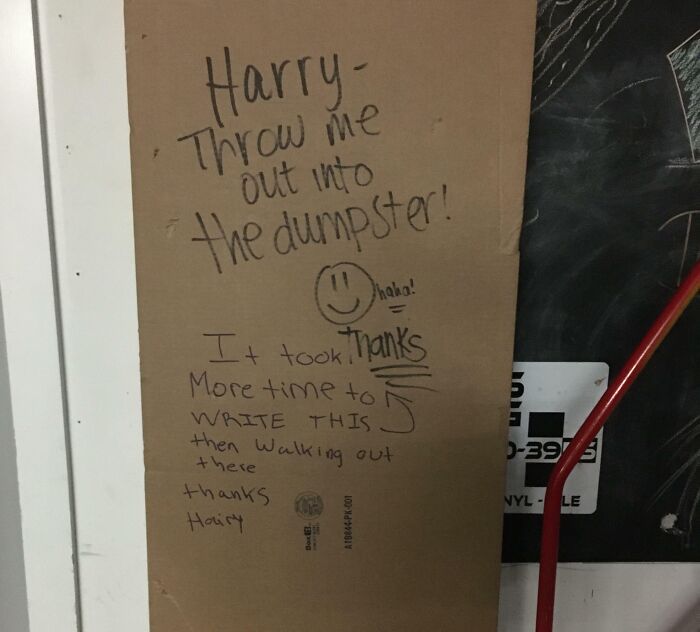 Harry-
Throw me
out into
the dumpster!
haha!
thanks
It took
More time to
WRITE THIS
then Walking out
there
thanks
Hairy
A18644-PK-001
-39
NYL - LE